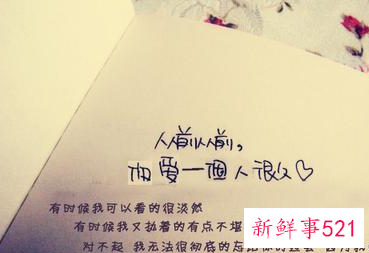 从前从前，
愛一個人很久♡
有时候我可以看的很淡然
有时候我又执着的有点不堪
对不起 我无法很彻底的忘
新鲜事521